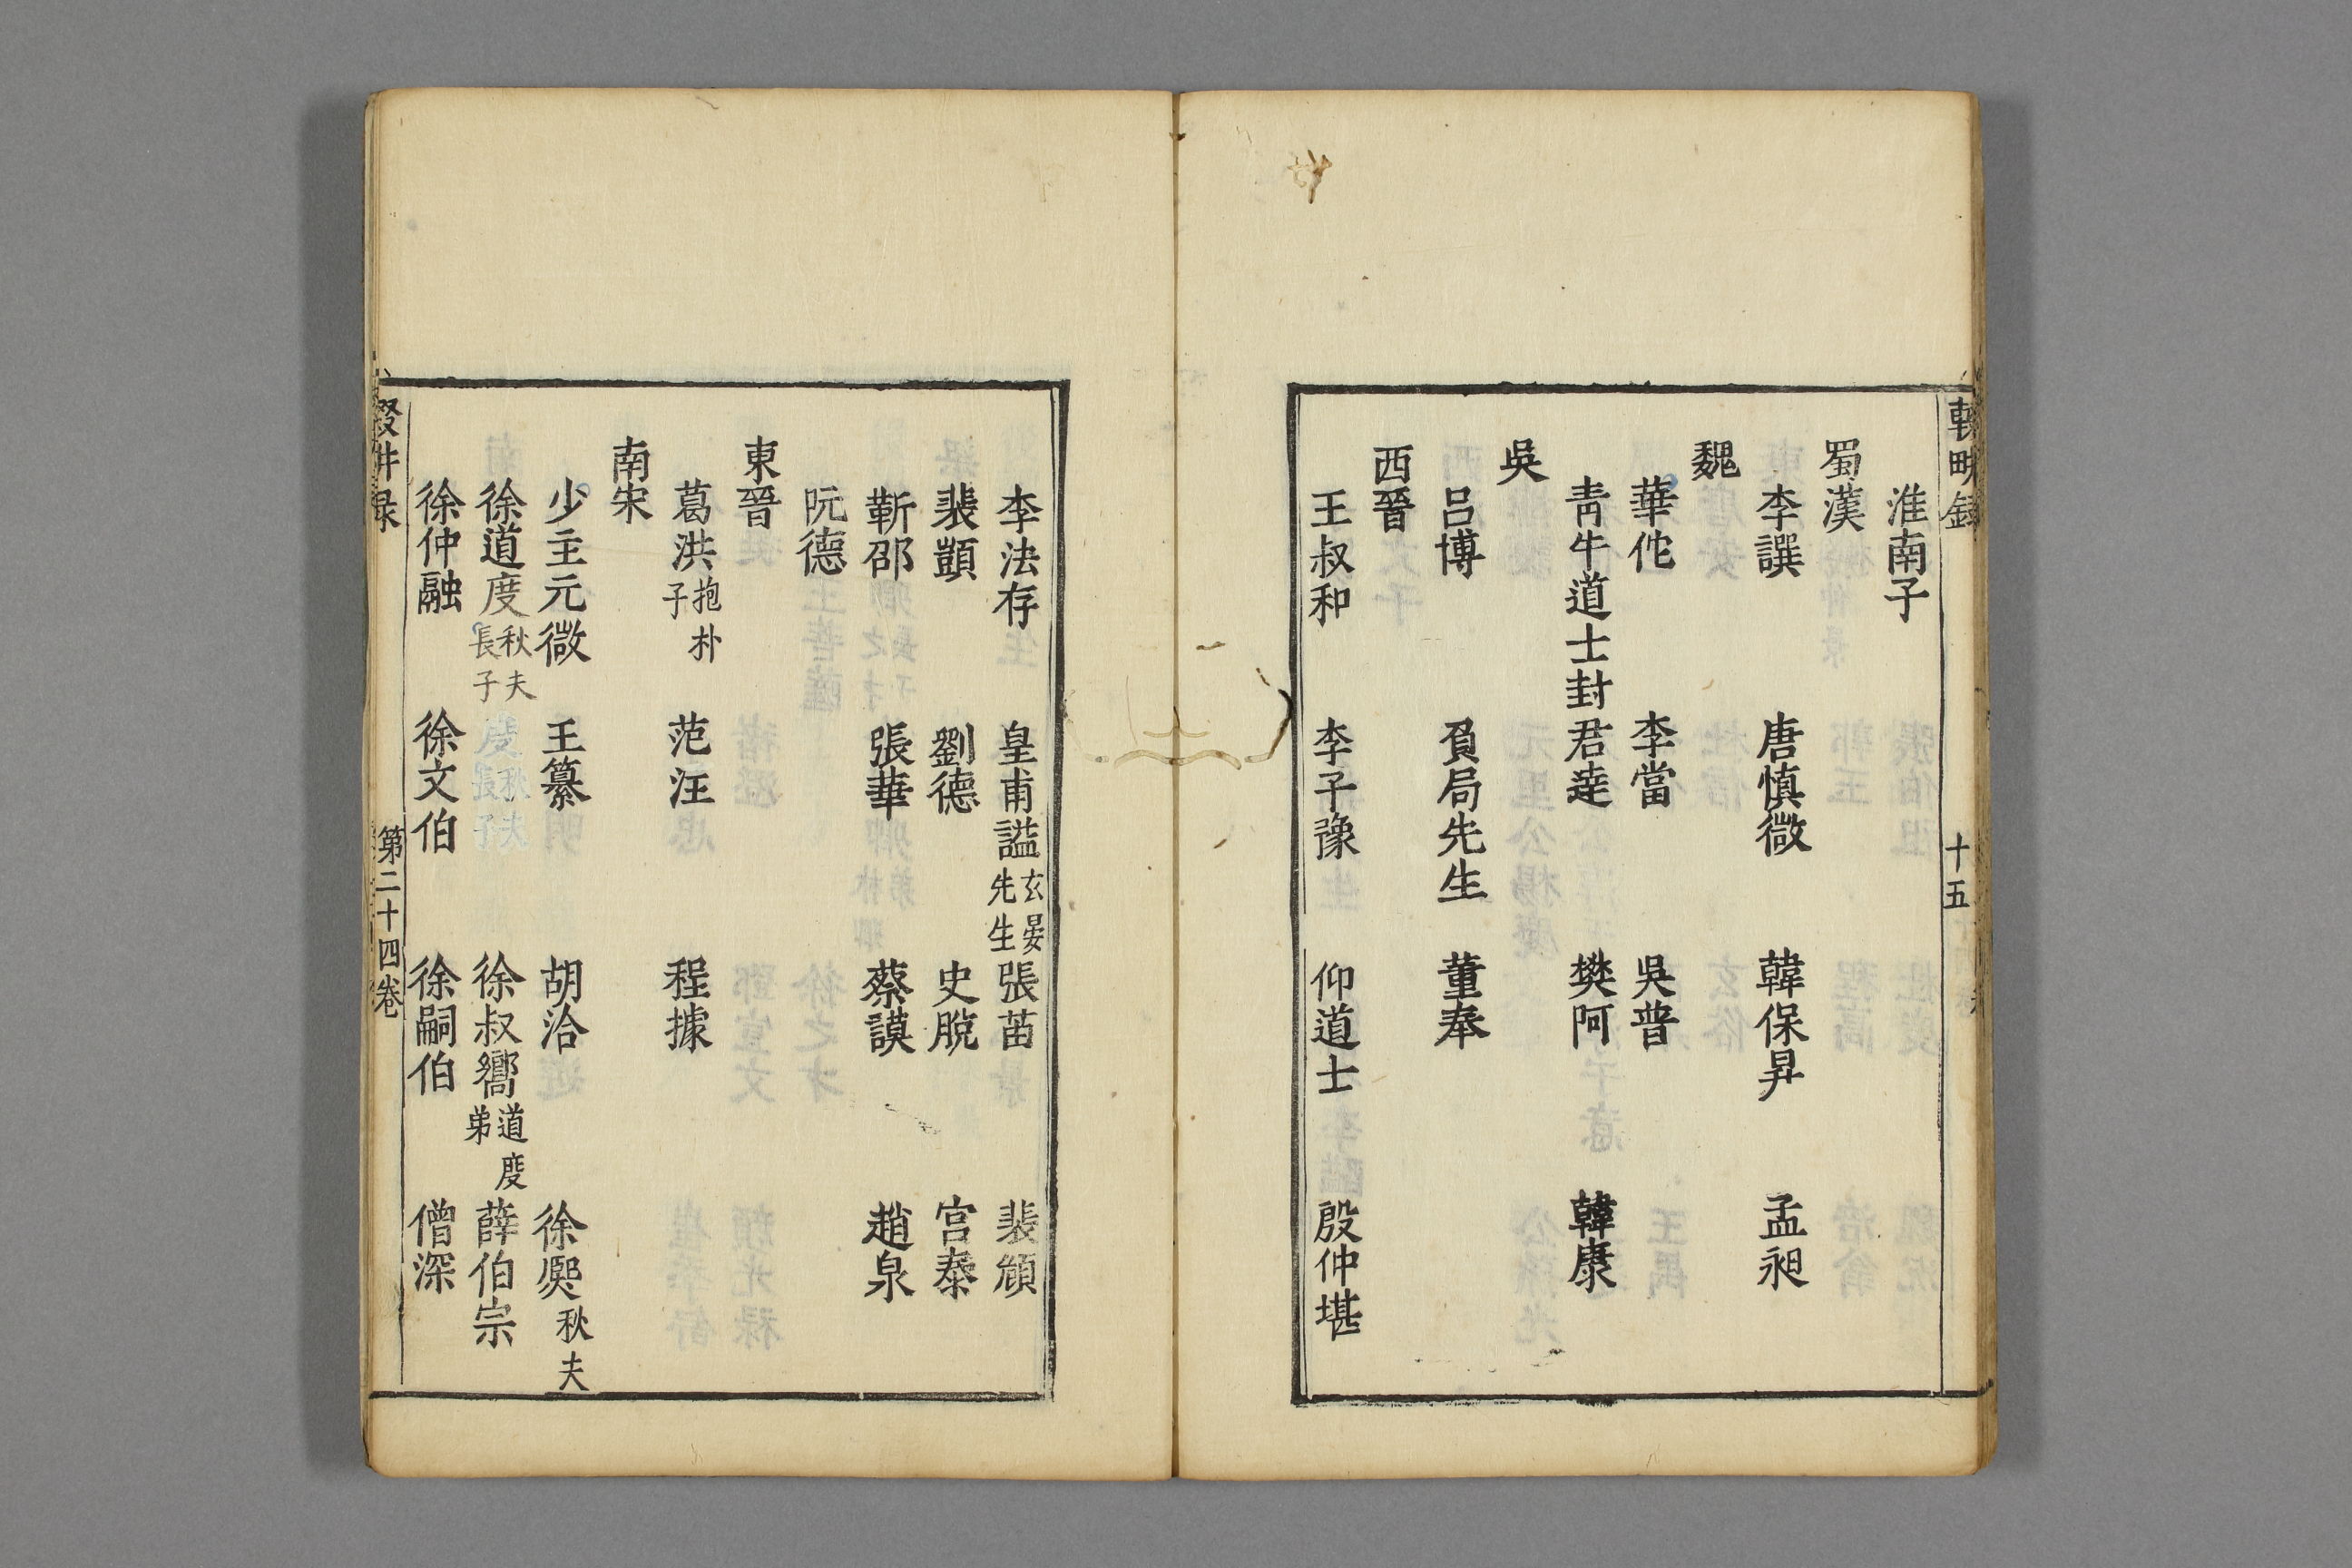 淮南子
蜀漢
李譔 唐慎微 韓保昇 孟昶
魏
華佗 李當 吳普
青牛道士封君達 樊阿 韓康
吳
呂博 負局先生 董奉
西晉
王叔和 李子豫 仰道士 殷仲堪
十五
李法存 皇甫謐玄晏先生 張苗 裴頠
裴顗 劉德 史脫 宮泰
靳邵 張華 蔡謨 趙泉
阮德
東晉
葛洪抱朴子 范汪 程據
南宋
少主元微 王纂 胡洽 徐熈秋夫
徐道度秋夫長子 徐叔嚮道度弟 薛伯宗
徐仲融 徐文伯 徐嗣伯 僧深
第二十四卷